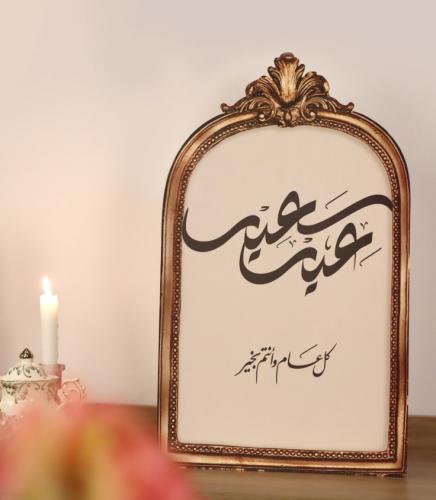 عيد سعيد
كل عام وأنتم بخير